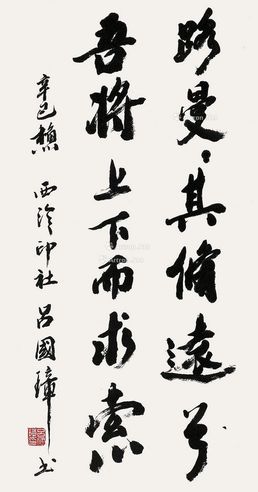 路曼〻其修遠兮
吾將上下而求索
辛巳穐 西泠印社 呂國璋書